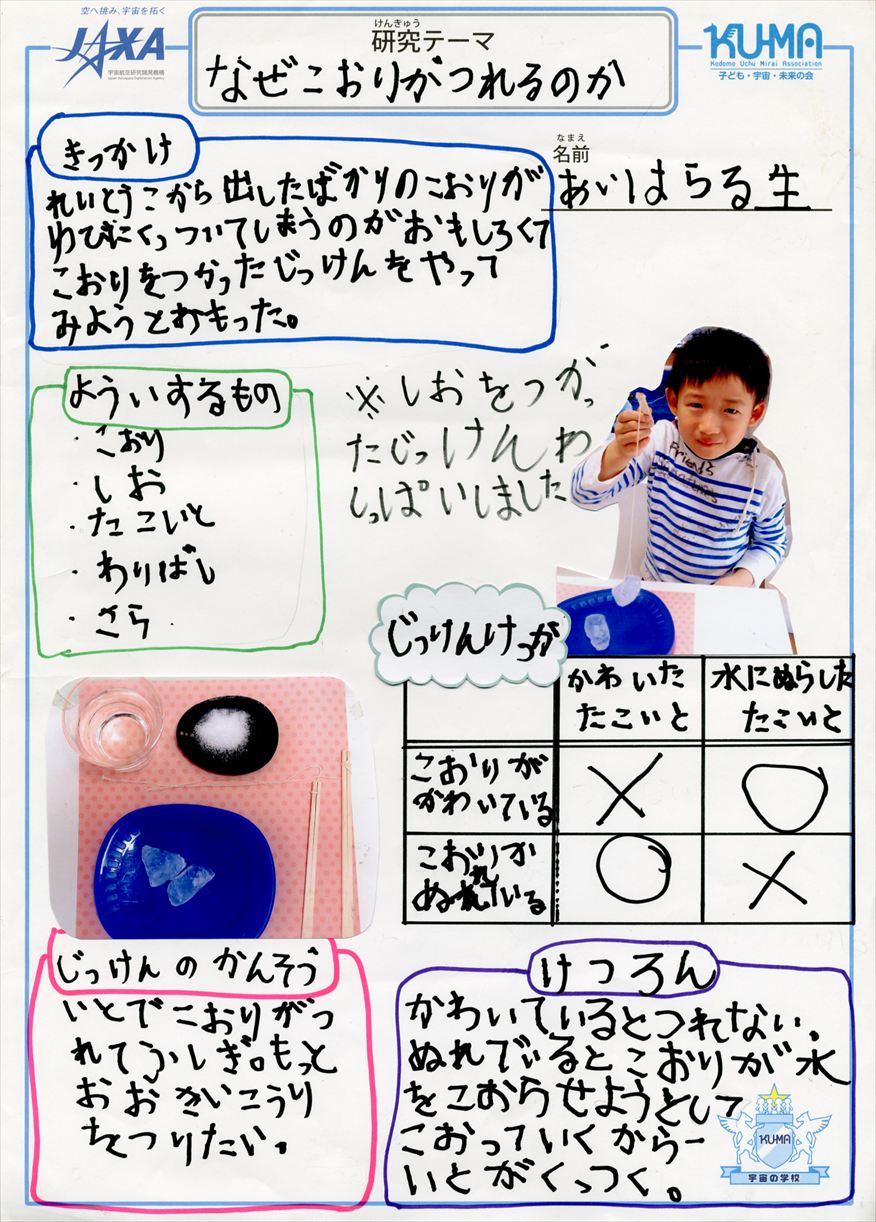 空へ挑み、宇宙を拓く
JAXA
宇宙航空研究開発機構
Japan Aerospace Exploration Agency
けんきゅう
研究テーマ
なぜこおりがつれるのか
KU-MA
Kodomo Uchu Mirai Association
子ども・宇宙・未来の会
なまえ
名前
あいはらる生
きっかけ
れいとうこから出したばかりのこおりが
ゆびにくっついてしまうのがおもしろくて
こおりをつかったじっけんをやって
みようとおもった。
よういするもの
・こおり
・しお
・たこいと
・わりばし
・さら
※しおをつかっ
たじっけんわ
しっぱいしました
じっけんけっか
かわいた
たこいと
水にぬらした
たこいと
こおりが
かわいている
×
○
こおりか
ぬれている
○
×
じっけんのかんそう
いとでこおりがつ
れてふしぎ。もっと
おおきいこうり
をつりたい。
けつろん
かわいているとつれない。
ぬれているとこおりが水
をこおらせようとして
こおっていくから
いとがくっつく。
KU-MA
宇宙の学校